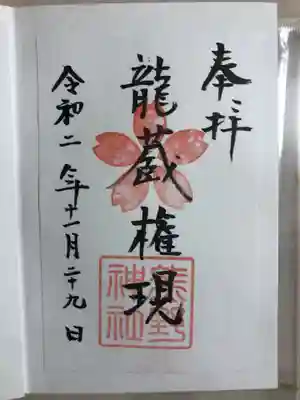 奉拝
龍蔵権現
令和二年十一月二十九日
熊野
神社